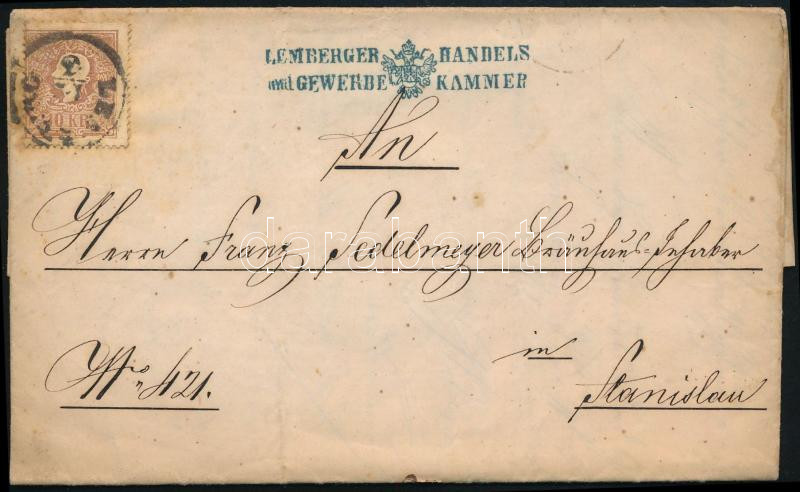 LEMBERGER HANDELS
und GEWERBE KAMMER
10 KR
An
Herrn Franz Sedelmeyer Bräuhaus=Inhaber
in
Nro 421.
Stanislau
darabanth